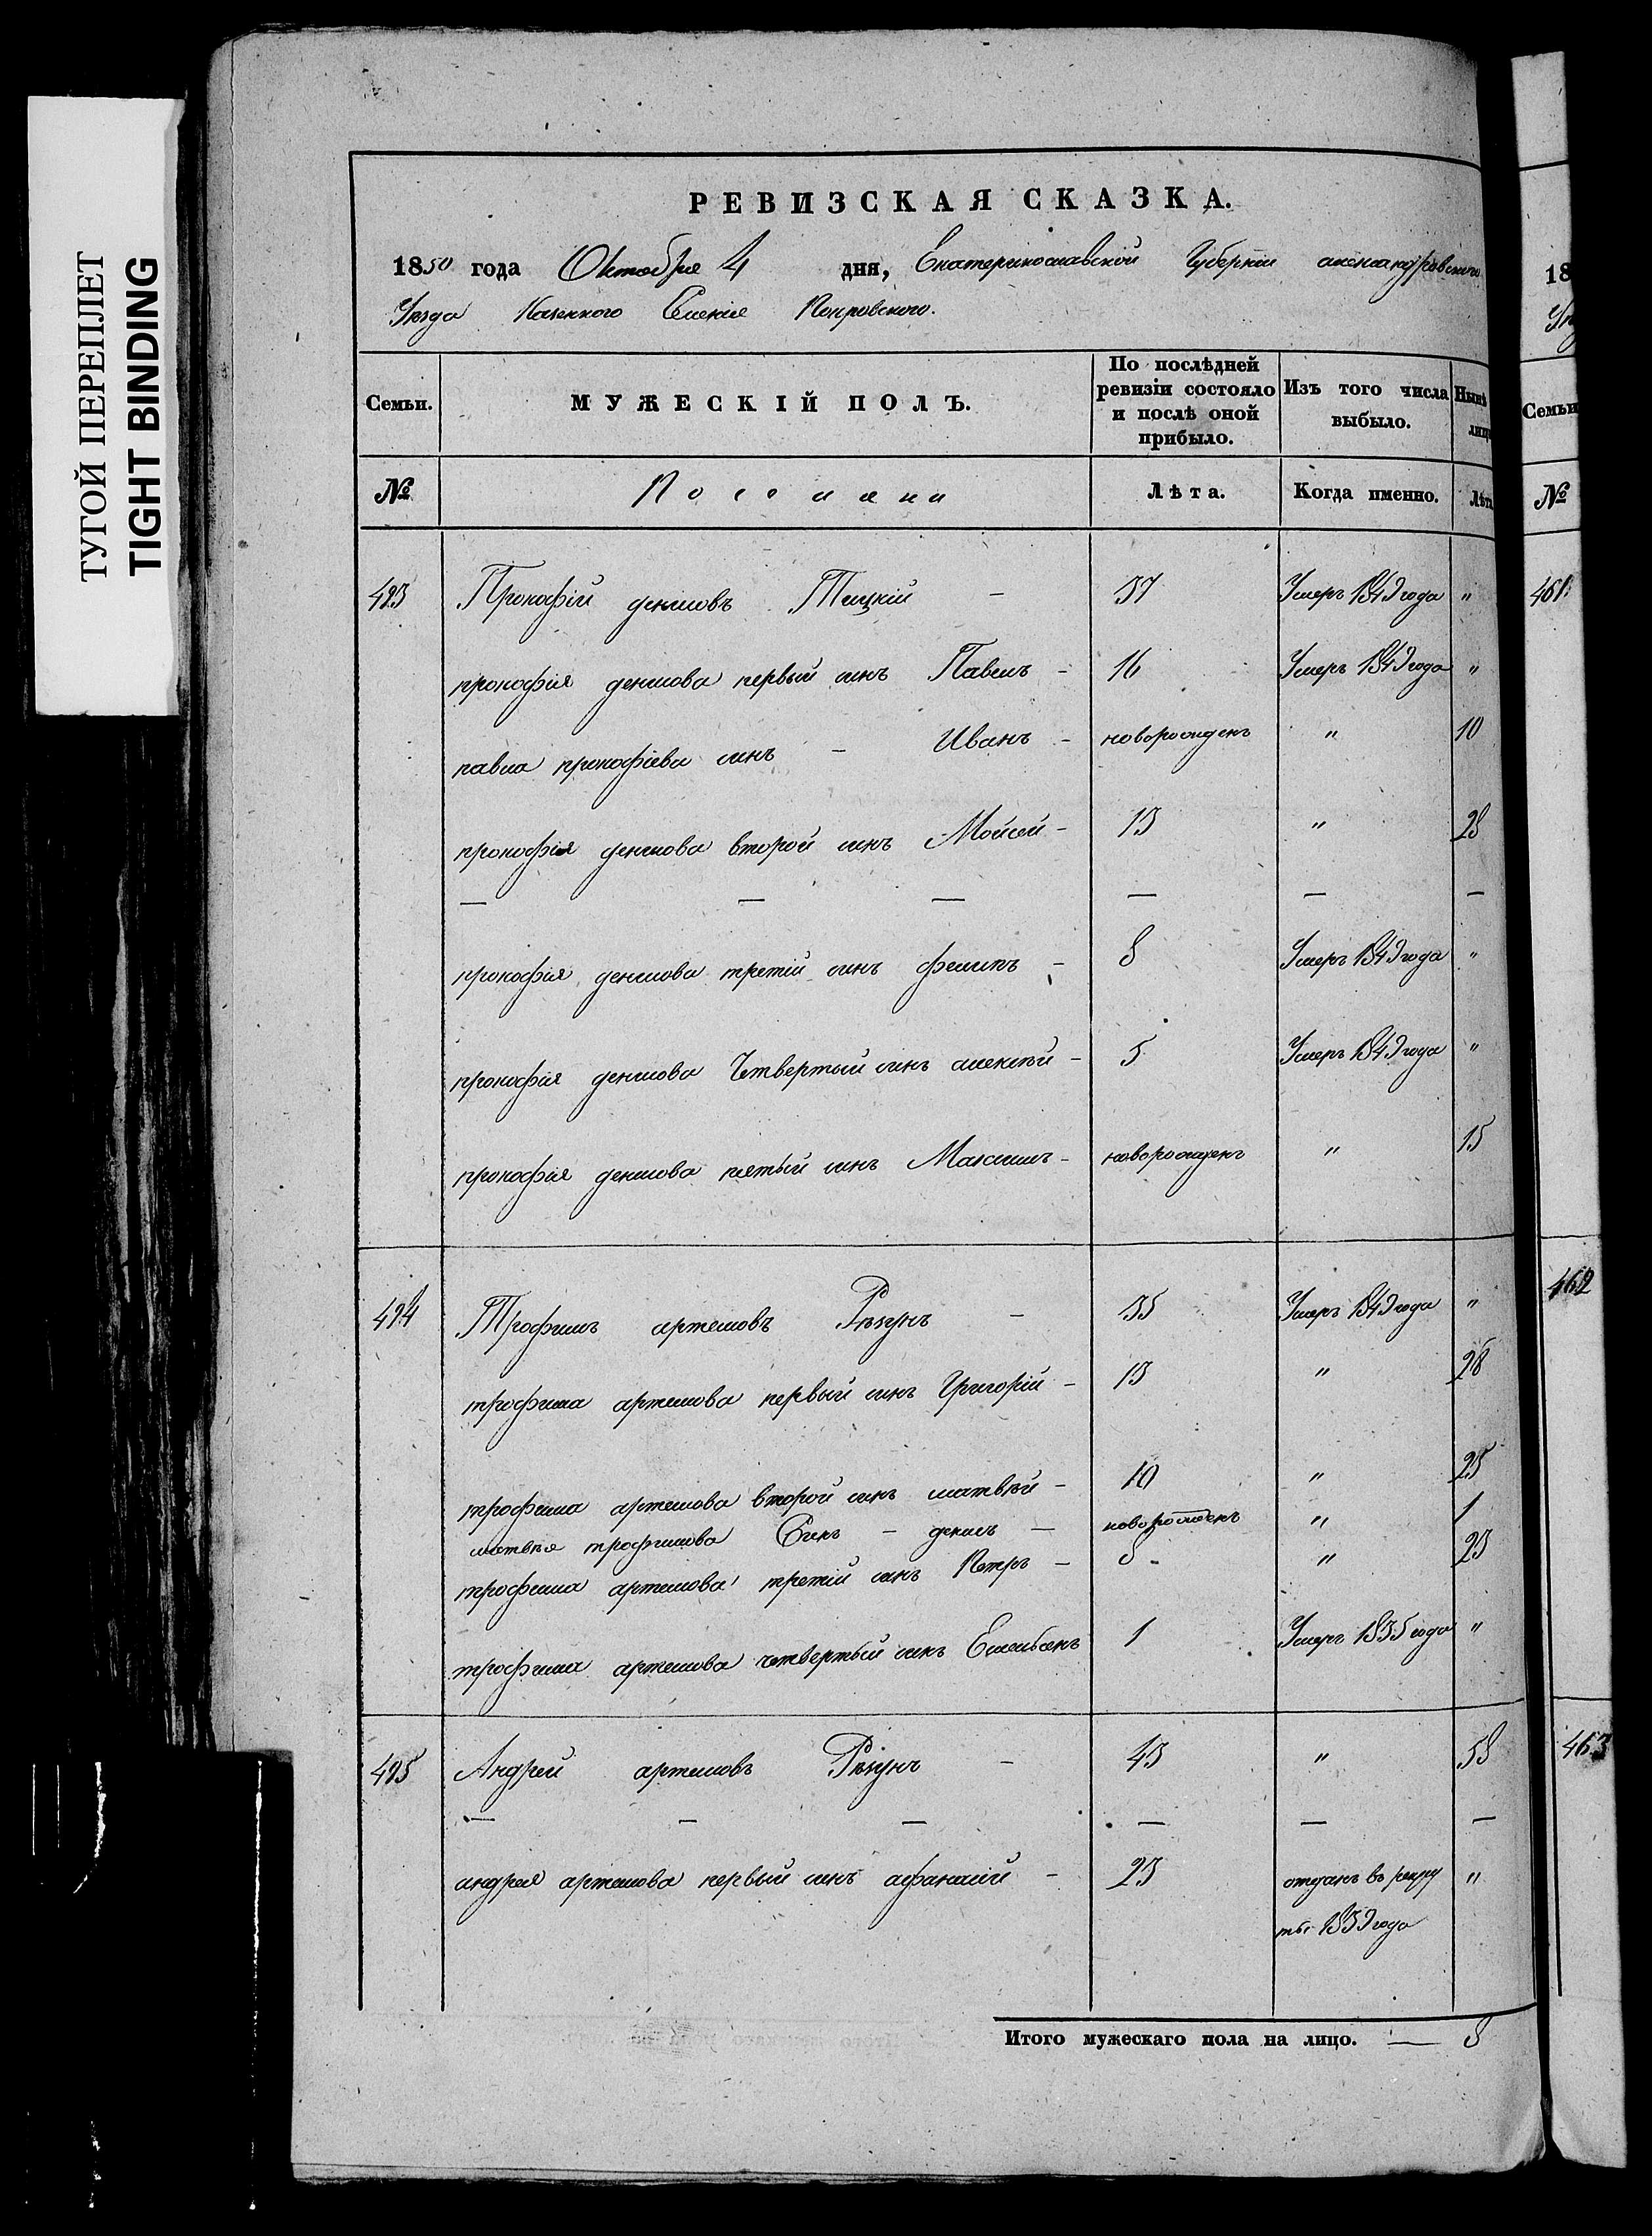 ТУГОЙ ПЕРЕПЛЕТ
TIGHT BINDING
РЕВИЗСКАЯ СКАЗКА.
1850 года Октября 4 дня, Екатеринославской Губернiи александровского
Уезда Казенного Селенiя Покровского.
Семьи. МУЖЕСКIЙ ПОЛЪ. По послѣдней ревизiи состояло и послѣ оной прибыло. Изъ того числа выбыло. Нынѣ лицо
№ Поселяни Лѣта. Когда именно. Лѣта
423 Прокофiй денисовъ 37 Умеръ 1849 года "
прокофiя денисова первый синъ Павелъ - 16 Умеръ 1849 года "
павла прокофiева синъ - Иванъ - новорожденъ " 10
прокофiя денисова второй синъ Мойсей - 13 " 28
— — — — — —
прокофiя денисова третiй синъ филипъ - 8 Умеръ 1849 года "
прокофiя денисова Четвертый синъ алексѣй - 5 Умеръ 1849 года "
прокофiя денисова пятый синъ Максимъ - новорожденъ " 15
424 Трофимъ артемовъ Рѣзунъ - 35 Умеръ 1849 года "
трофима артемова первый синъ Григорiй - 13 " 28
трофима артемова второй синъ матвѣй - 10 " 25
матвѣя трофимова Синъ - денисъ - новорожденъ " 1
трофима артемова третiй синъ Петръ - 8 " 23
трофима артемова четвертый синъ 1 Умеръ 1835 года "
425 Андрей артемовъ Рѣзунъ - 43 " 58
— — — — — —
андрея артемова первый синъ афанасiй - 23 отданъ въ рекру "
ты 1839 года
Итого мужескаго пола на лицо. — 8
18
Семьи
№
461
462
463